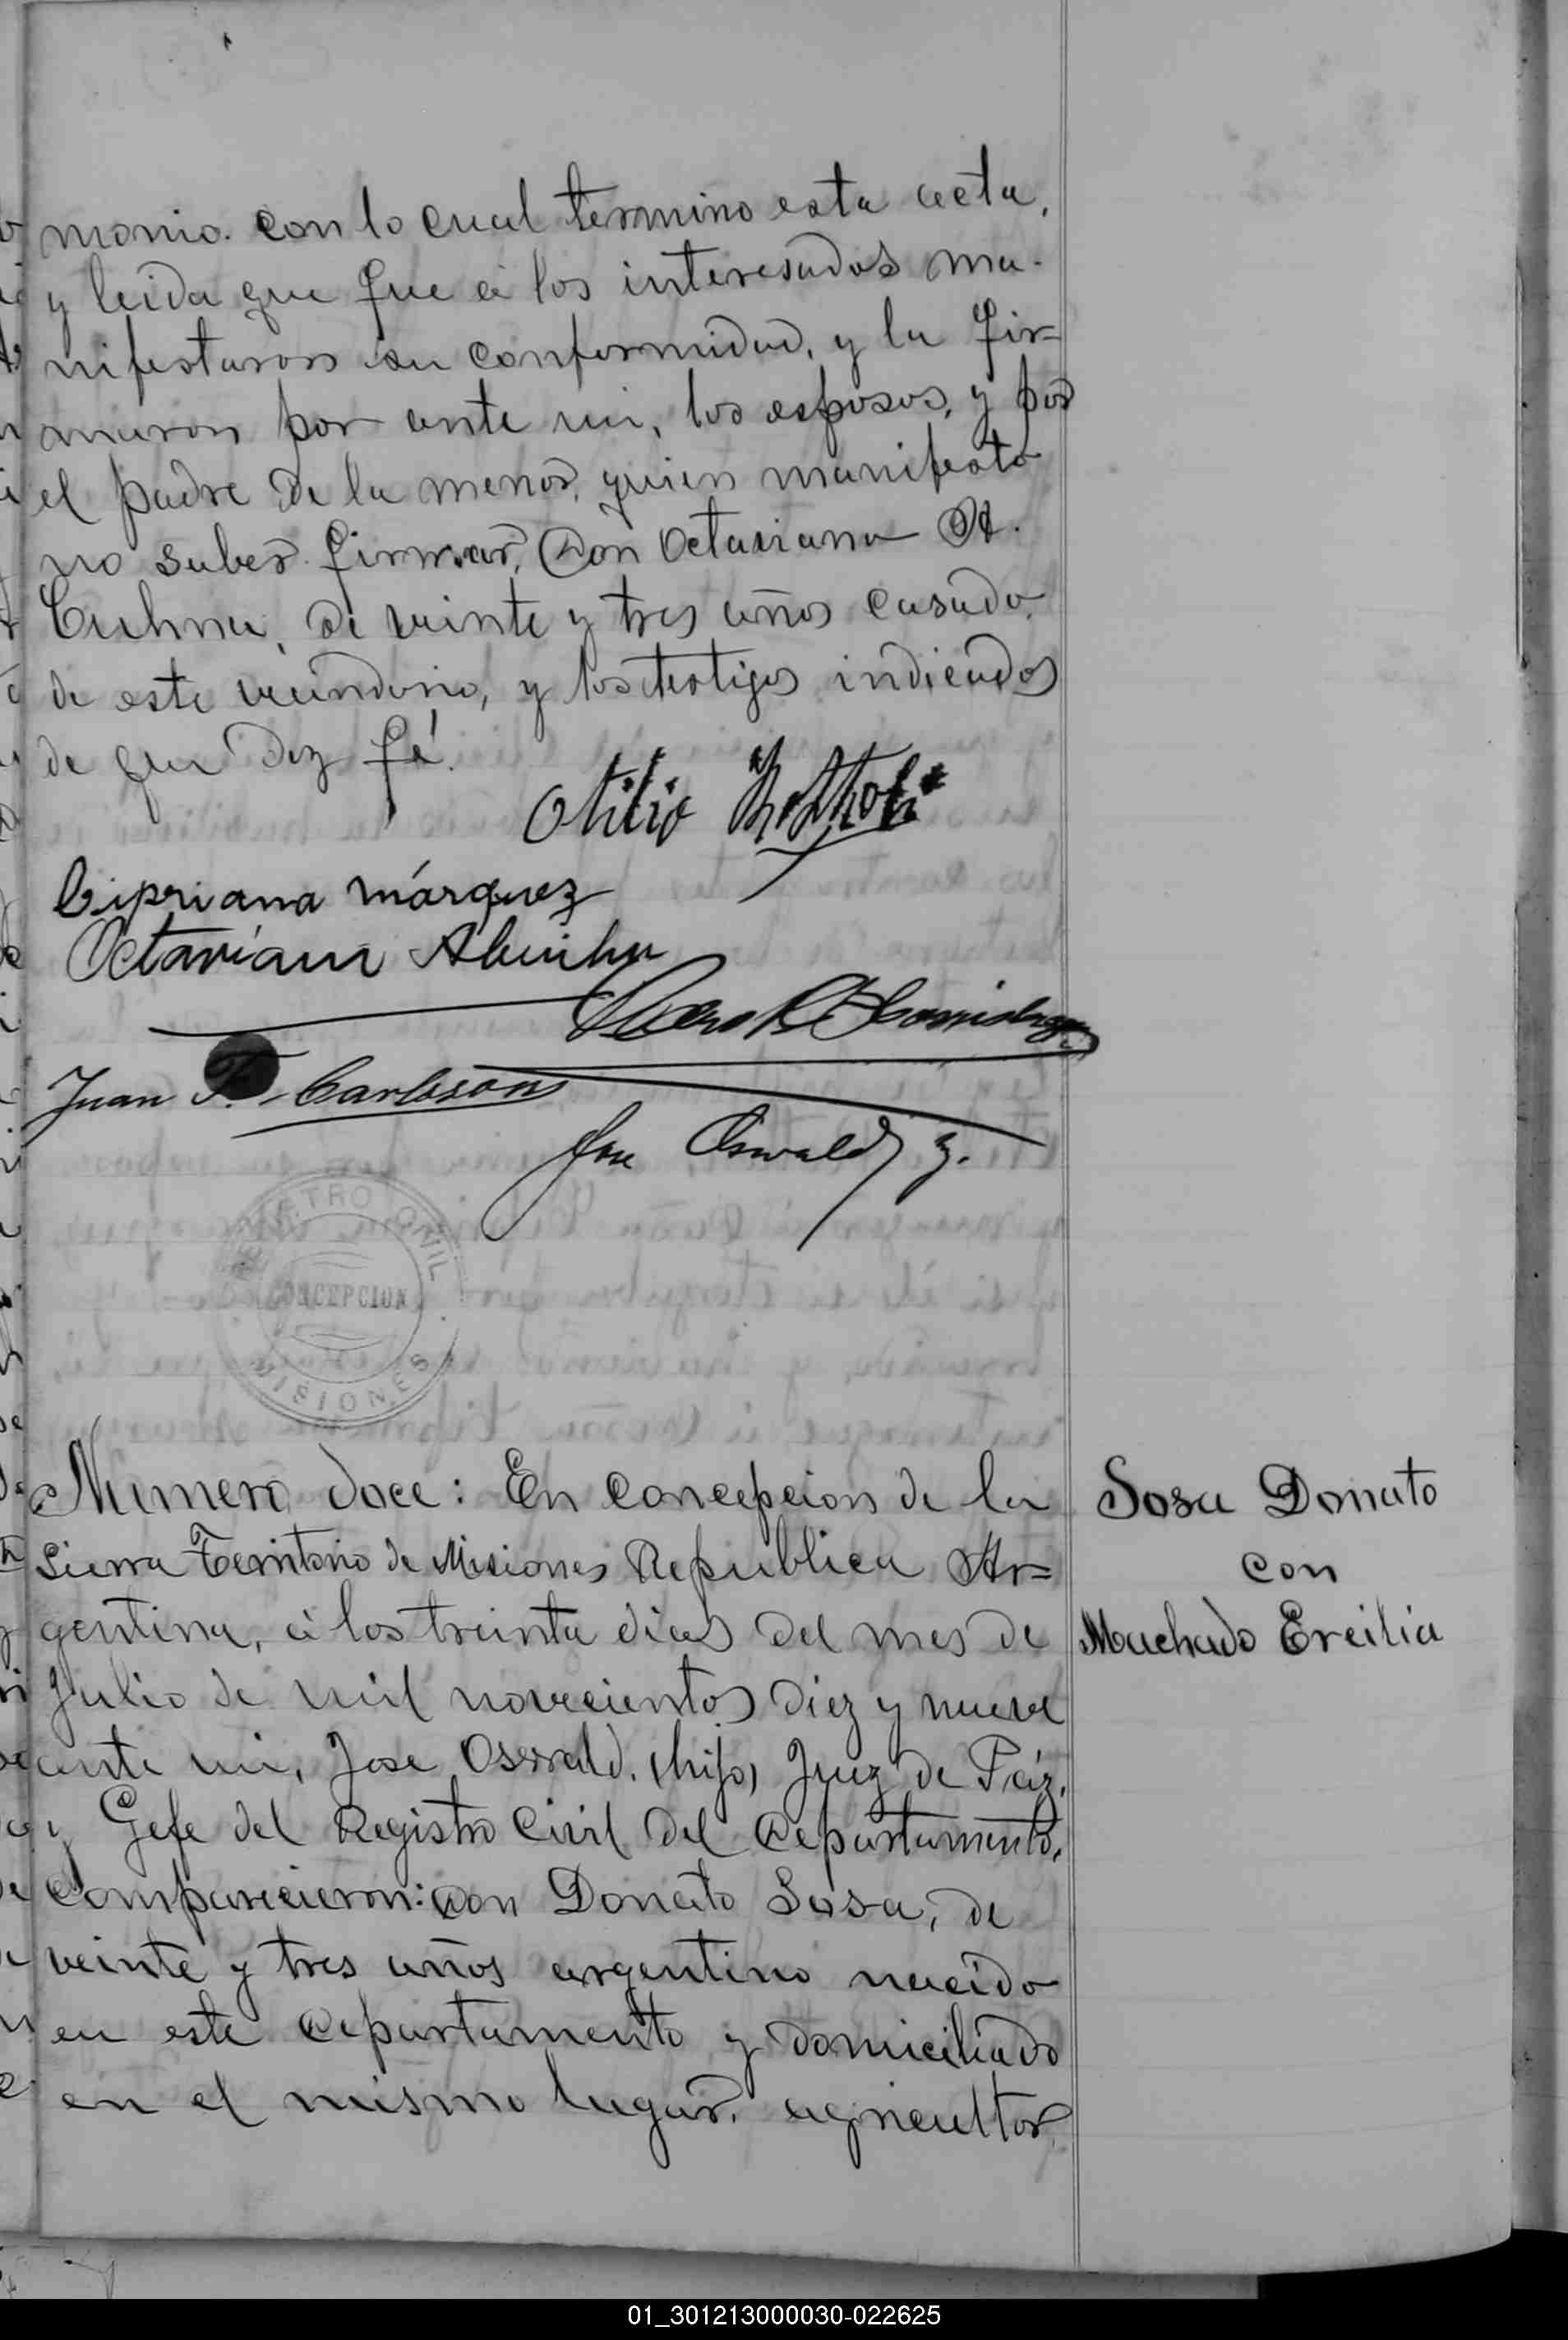 monio. con lo cual termino esta acta,
y leida que fue á los interesados ma-
nifestaron su conformidad, y la fir-
maron por ante mi, los esposos, y por
el padre de la menor, quien manifesto
no saber firmar, Don Octaviano A.
Cuhna, de veinte y tres años casado,
de este vecindario, y los testigos indicados
de que doy fé.
Otilio
Cipriana Márquez
Octaviano
Juan F. Carlsson
Jose Oswald h.
REGISTRO CIVIL
CONCEPCION
MISIONES
Numero doce: En Concepcion de la
Sierra Territorio de Misiones Republica Ar=
gentina, á los treinta dias del mes de
Julio de mil novecientos diez y nueve
ante mi, Jose Oswald. (hijo) Juez de Páz,
y Gefe del Registro Civil del Departamento,
comparecieron: Don Donato Sosa, de
veinte y tres años argentino nacido
en este Departamento y domiciliado
en el mismo lugar, agricultor
Sosa Donato
con
Machado Ercilia
01_301213000030-022625